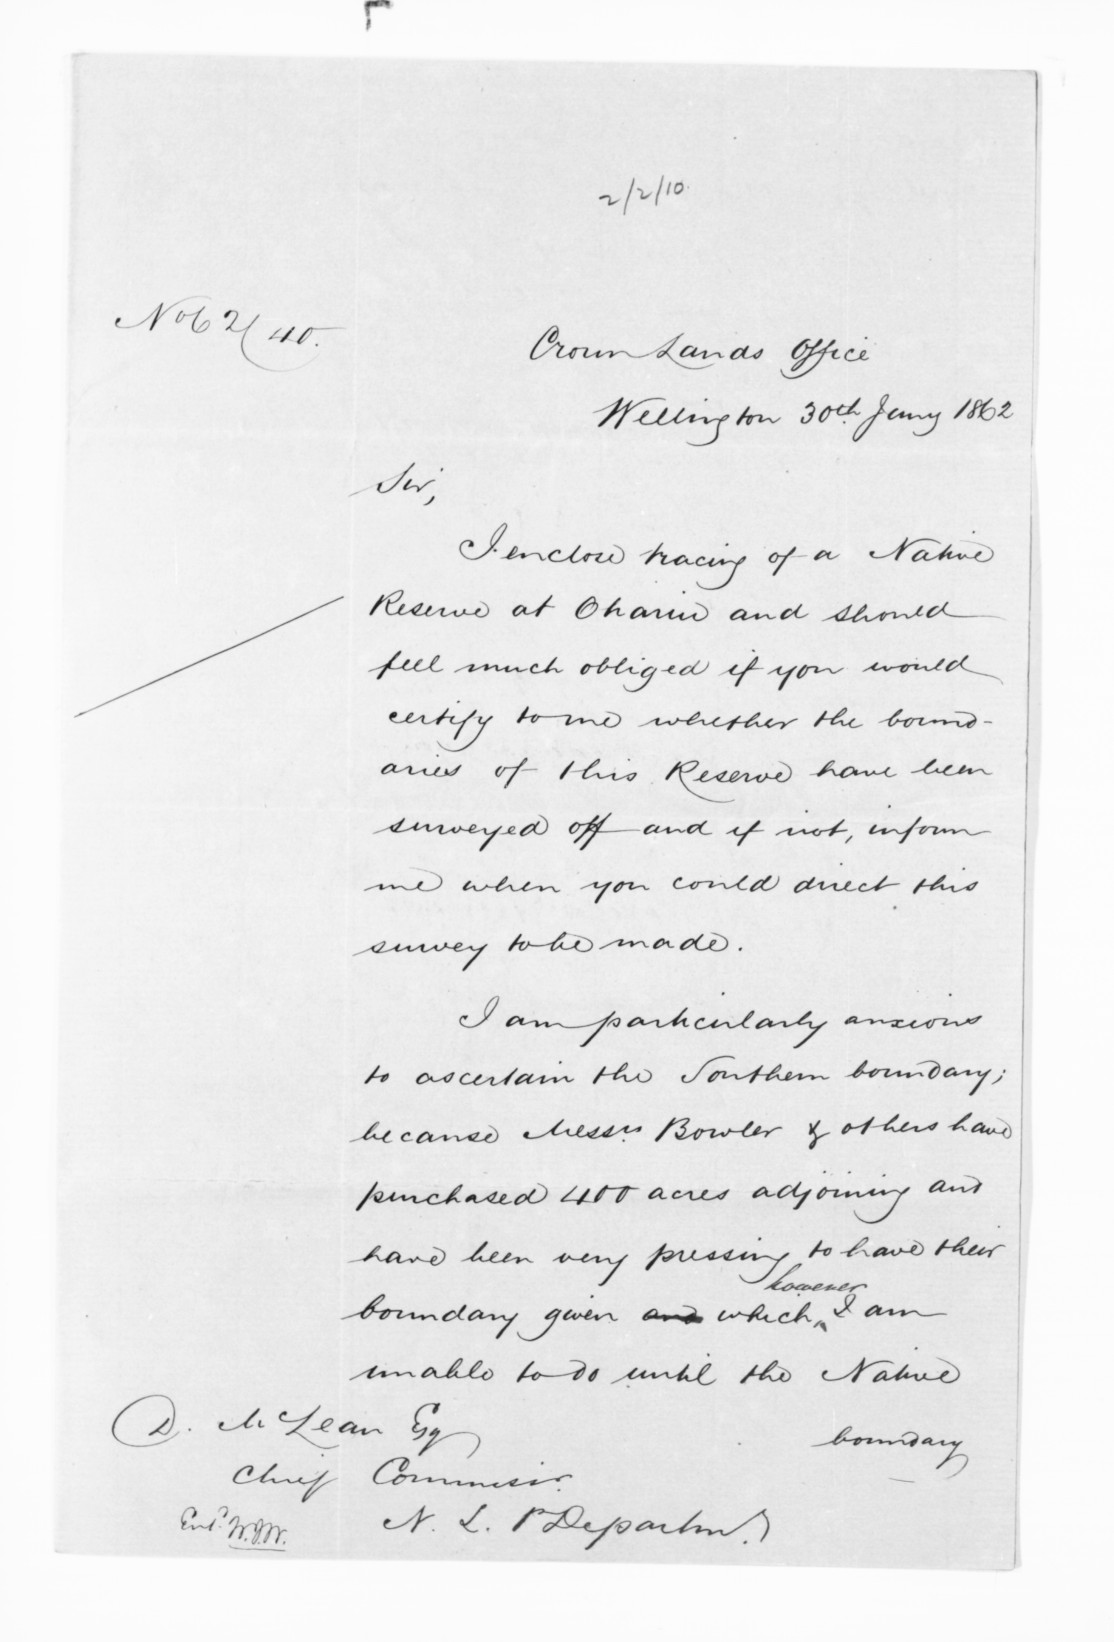 2/2/10.
No 62/40.
Crown Lands Office
Wellington 30th Jany 1862
Sir,
I enclose tracing of a Native
Reserve at Ohariu and should
feel much obliged if you would
certify to me whether the bound-
aries of this Reserve have been
surveyed off and if not, inform
me when you could direct this
survey to be made.
I am particularly anxious
to ascertain the Southern boundary;
because Messrs. Bowler & others have
purchased 400 acres adjoining and
have been very pressing to have their
boundary given and which, however I am
unable to do until the Native
boundary
D. McLean Esq
Chief Commissr.
N. L. P Departmt.
Entd. W.J.W.